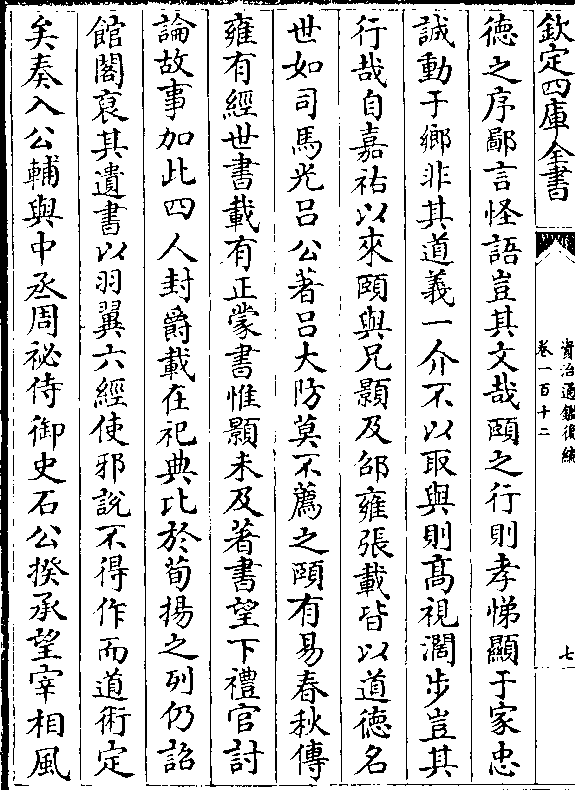 欽定四庫全書
資治通鑑後編
卷一百十二
七
德之序鄙言怪語豈其文哉頤之行則孝悌顯于家忠
誠動于鄉非其道義一介不以取與則髙視濶步豈其
行哉自嘉祐以來頤與兄顥及邵雍張載皆以道德名
世如司馬光吕公著吕大防莫不薦之頤有易春秋傳
雍有經世書載有正蒙書惟顥未及著書望下禮官討
論故事加此四人封爵載在祀典比於荀揚之列仍詔
館閣裒其遺書以羽翼六經使邪說不得作而道術定
矣奏入公輔與中丞周祕侍御史石公揆承望宰相風